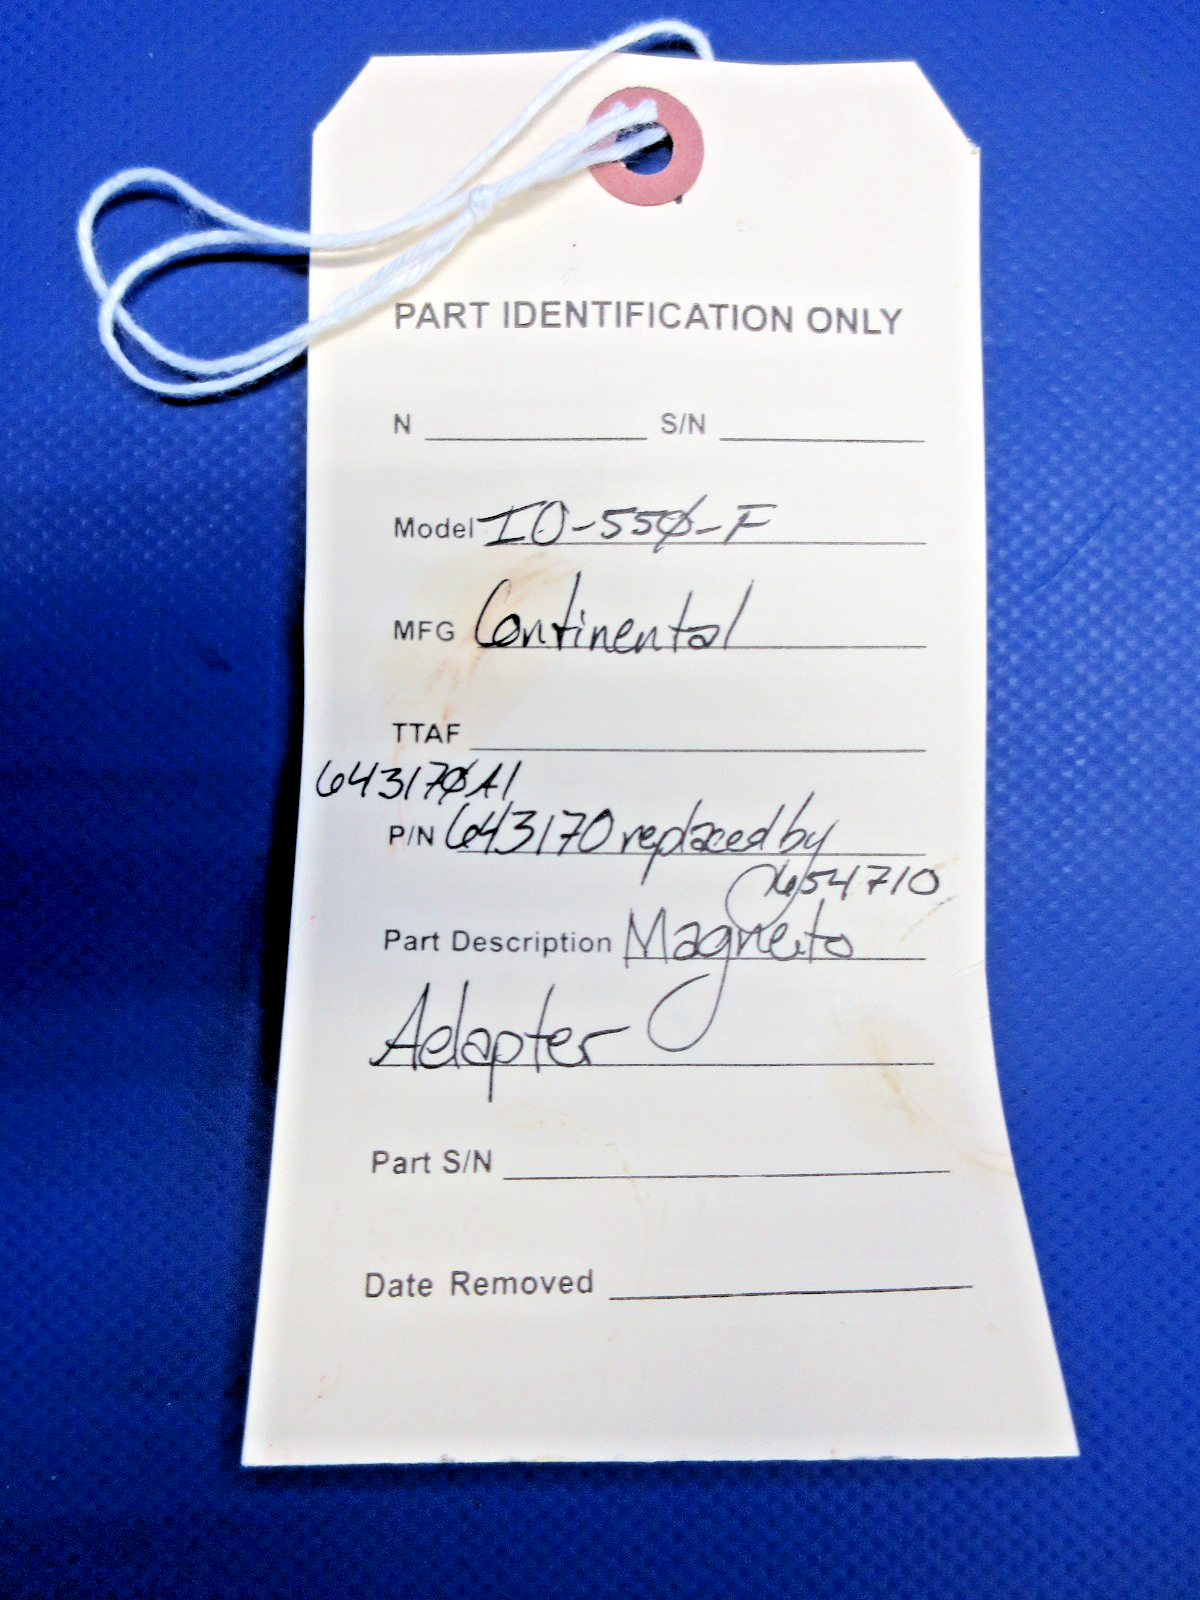 PART IDENTIFICATION ONLY
N S/N
Model IO-550-F
MFG Continental
TTAF
643170A1
P/N 643170 replaced by
654710
Part Description Magneto
Adapter
Part S/N
Date Removed